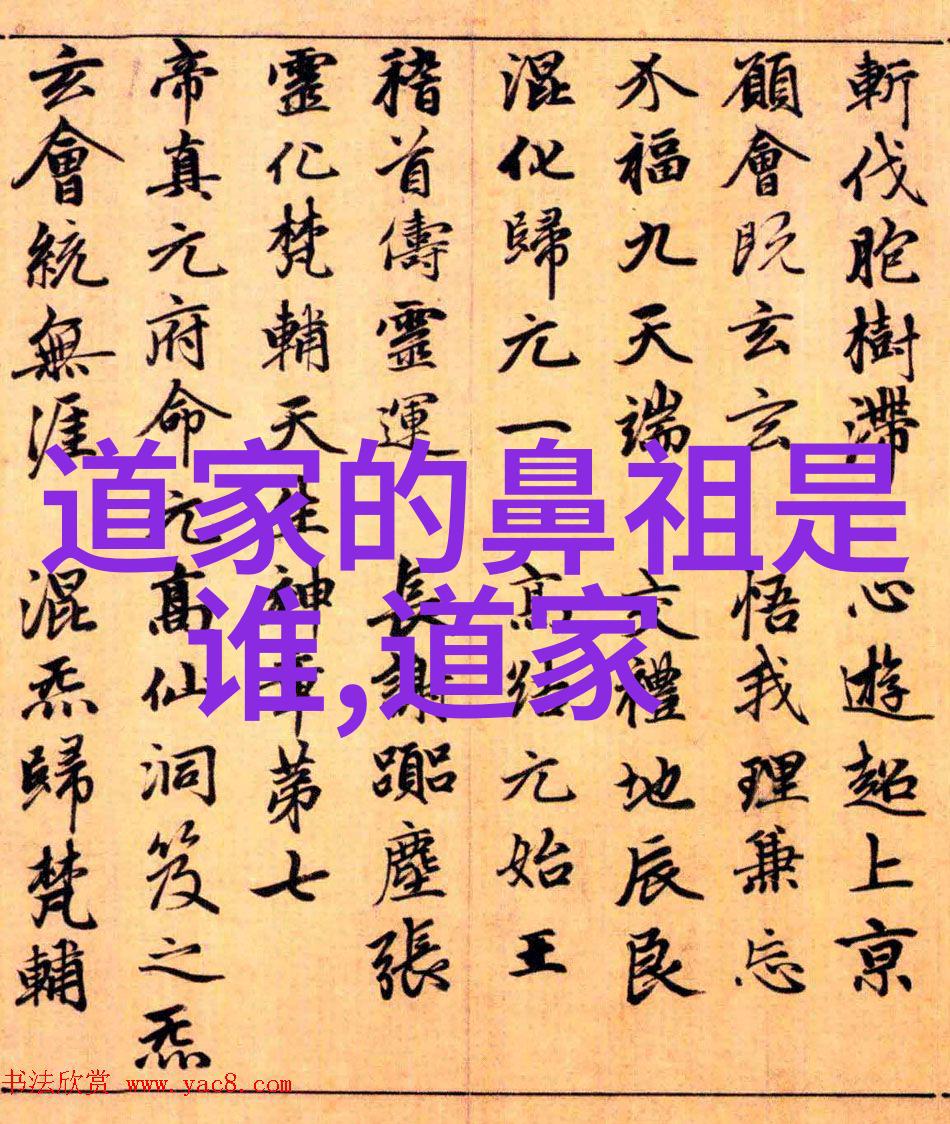 斬伐胞樹滯 心遊超上京
願會既玄玄 悟我理兼忘
介福九天端 交禮地辰良
混化歸元一 高結元始王
稽首儔靈運 長謝塵張
靈化梵輔天生神章第七
帝真元府命元高仙洞笈之炁
玄會統無涯 混炁歸梵輔
道家的鼻祖是
谁,道家
书法欣赏 www.yac8.com